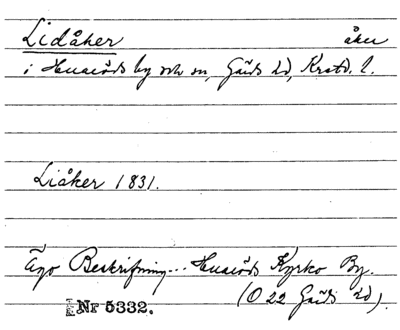 Lidåker åker
i Huaröds by och sn, Gärds hd, Krstds l.
Liåker 1831.
Ägo Beskrifning... Huaröds Kyrko By.
(O 22 Gärds hd).
Nr 5332.